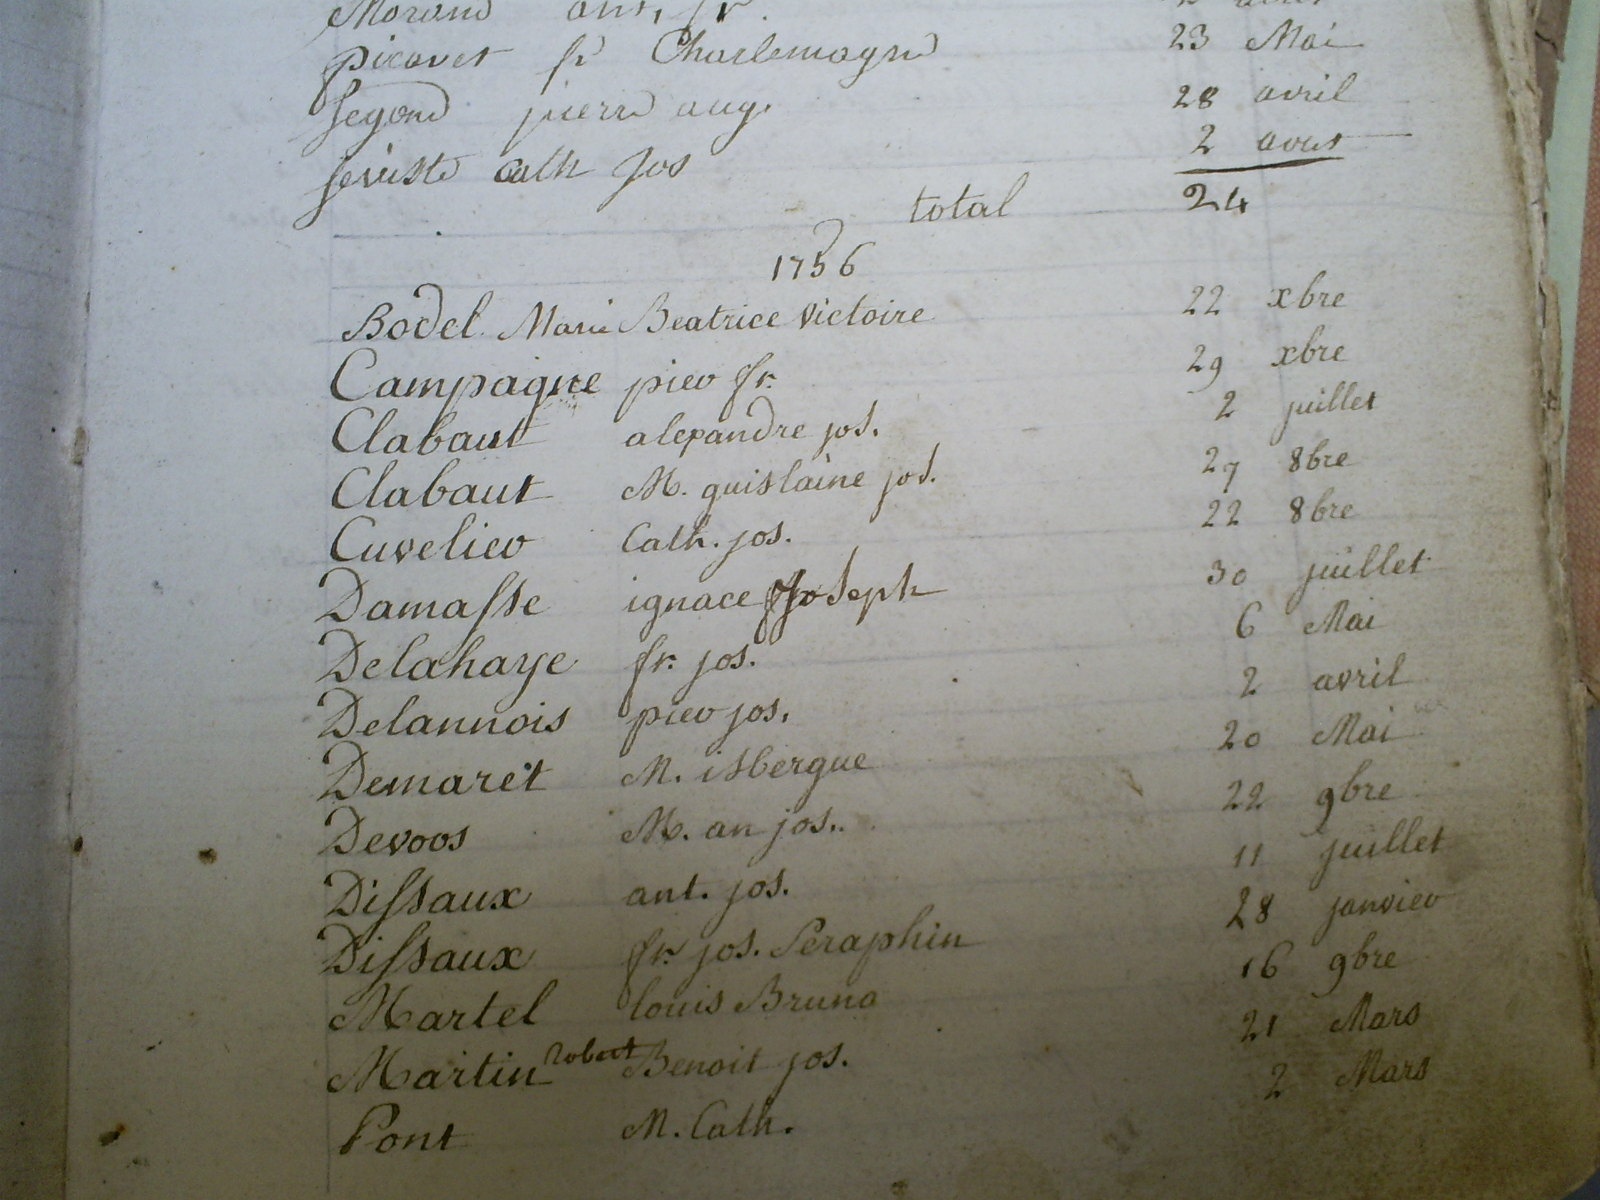 Morand ant. fr. 2 avril
picavet fr Charlemagne 23 Mai
segond pierre aug. 28 avril
seviste Cath Jos 2 avril
total 24
1756
Bodel Marie Beatrice victoire 22 xbre
Campagne pier fr. 29 xbre
Clabaut alexandre jos. 2 juillet
Clabaut M. guislaine jos. 27 8bre
Cuvelier Cath. jos. 22 8bre
Damasse ignace Joseph 30 juillet
Delahaye fr. jos. 6 Mai
Delannois pier jos. 2 avril
Demaret M. isbergue 20 Mai
Devoos M. an jos. 22 9bre
Dissaux ant. jos. 11 juillet
Dissaux fr. jos. Seraphin 28 janvier
Martel louis Bruno 16 9bre
Martin robert Benoit jos. 21 Mars
Pont M. Cath. 2 Mars